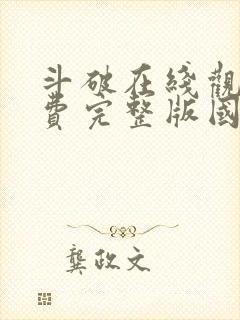 斗破在綫觀
費完整版國
龔政文